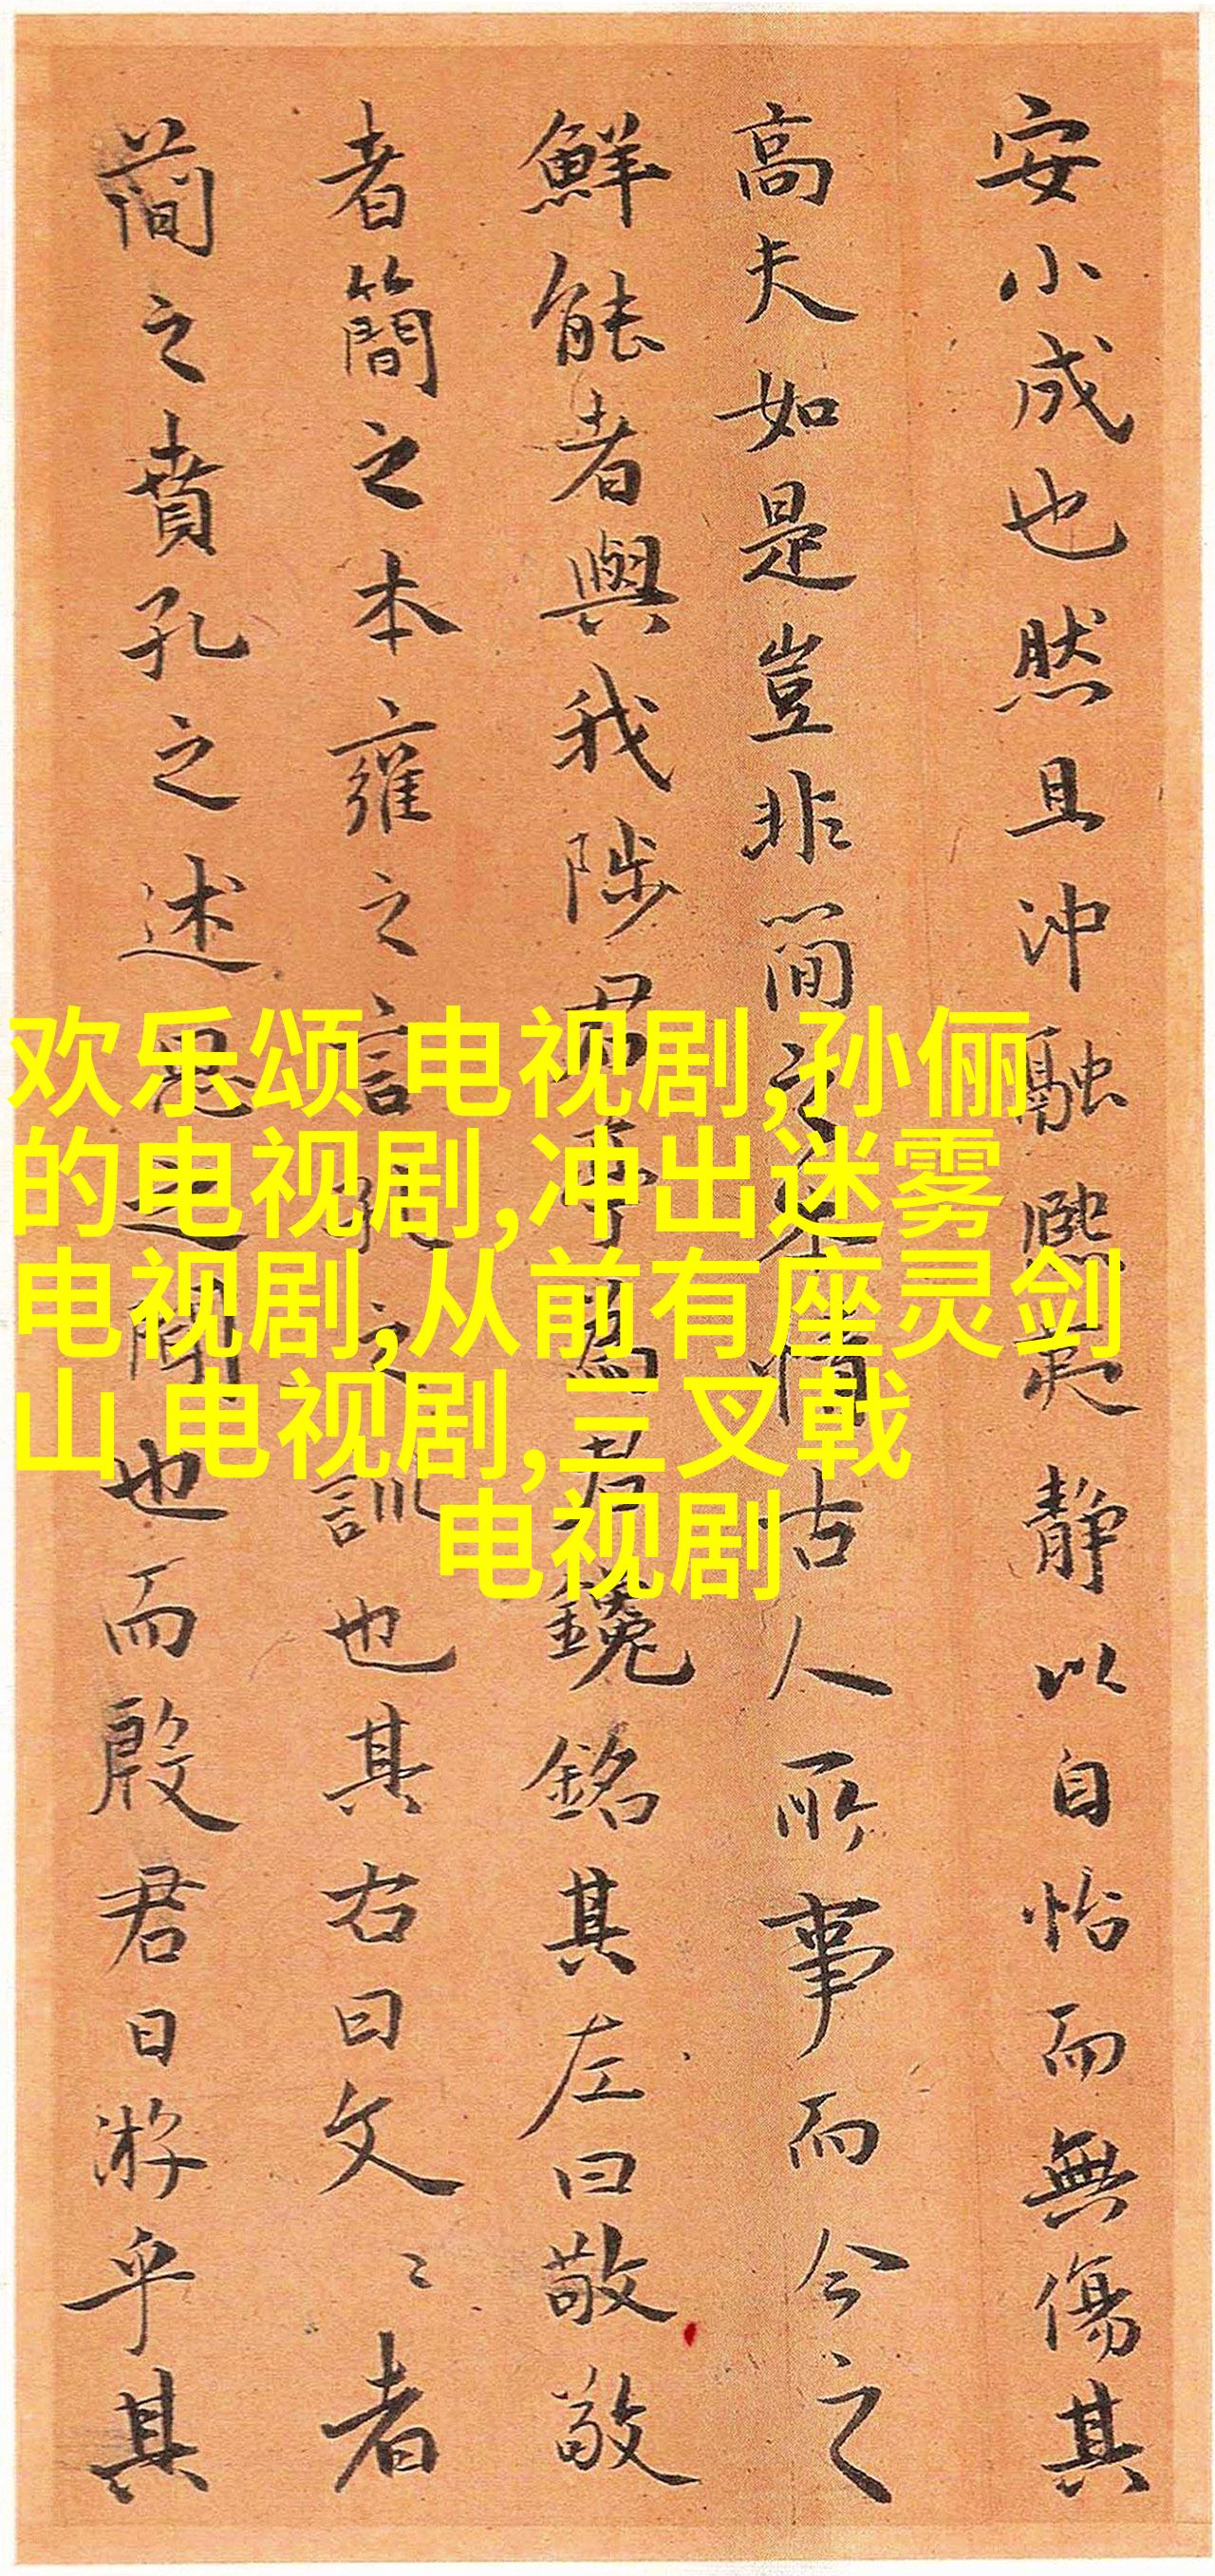 安小成也然且冲融熙熙静以自怡而無傷其
高夫如是豈非簡之至情古人所事而今之
鮮能者與我陟君事爲君鑱銘其左曰敬敬
者簡之本雍之言之訓也其右曰文〻者
簡之賁孔之述思之聞也而殷君日游乎其
欢乐颂 电视剧,孙俪
的电视剧,冲出迷雾
电视剧,从前有座灵剑
山 电视剧,三叉戟
电视剧